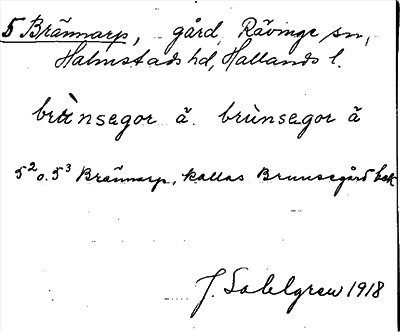 5 Brännarp, gård, Rävinge sn,
Halmstads hd, Hallands l.
brùnsegor ã. brùnsegor ã
5² o. 5³ Brännarp, kallas Brunsegård bek
J. Sahlgren 1918